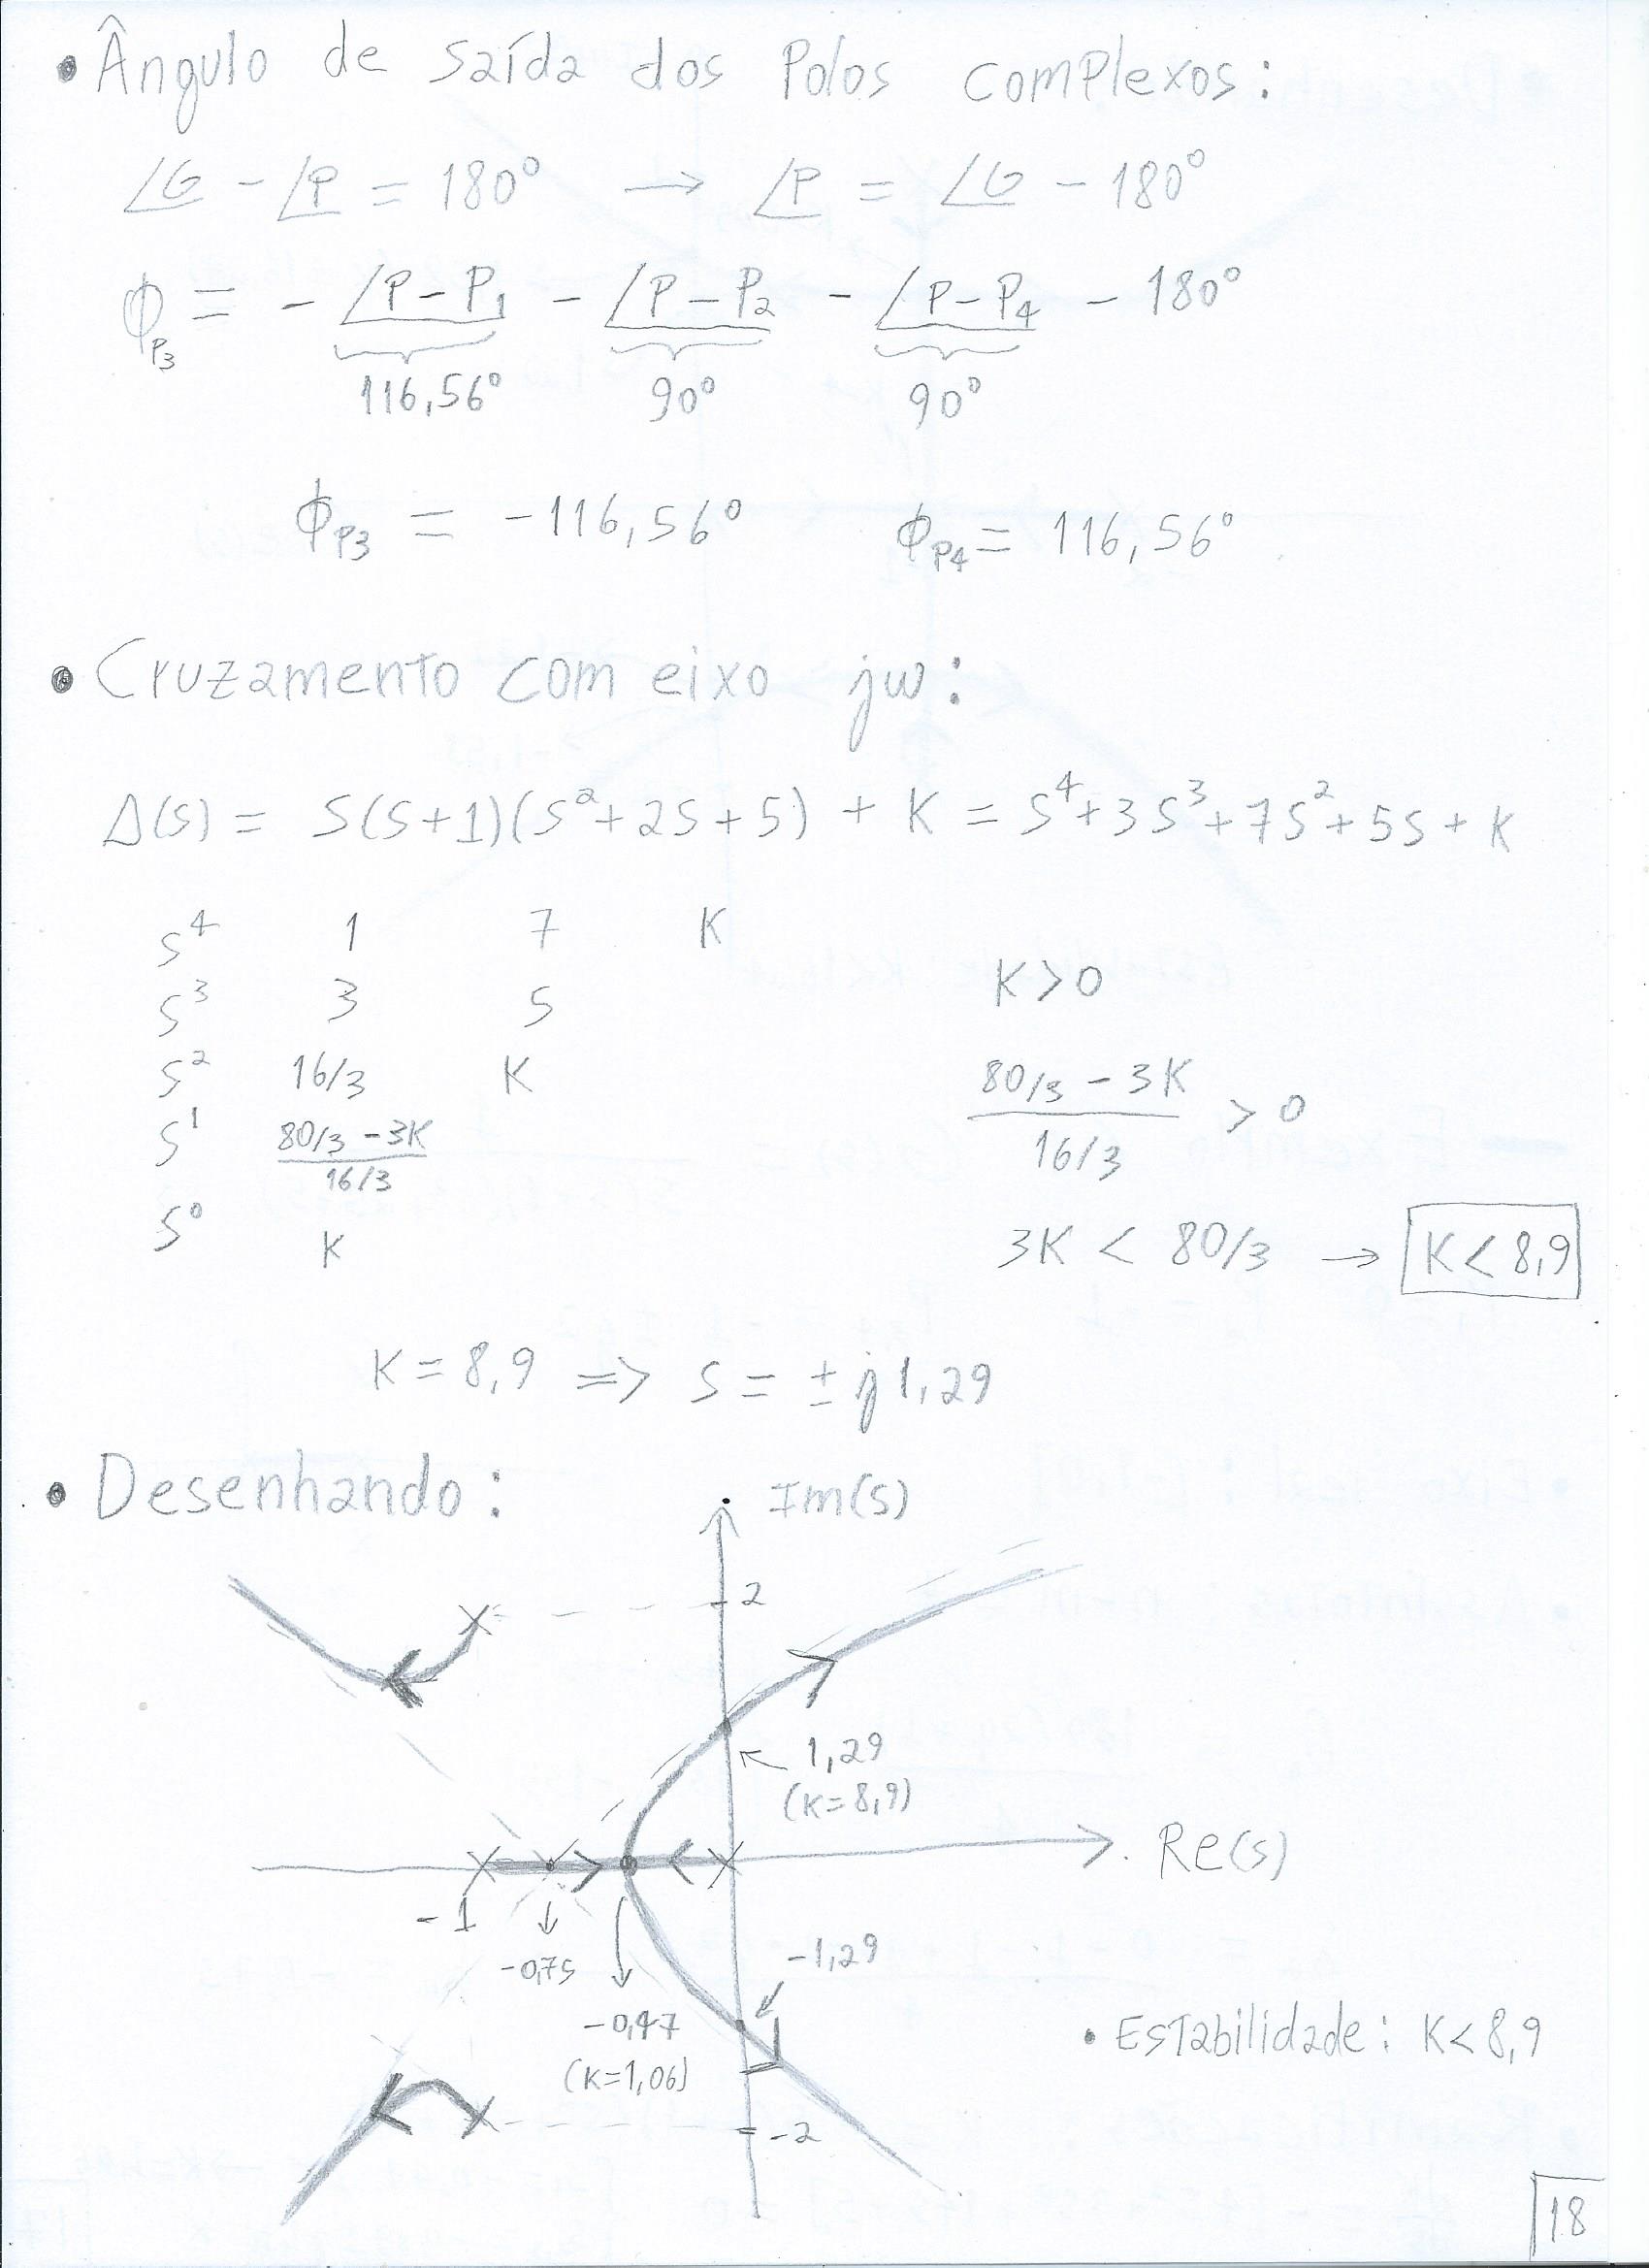 • Ângulo de saída dos Polos complexos:
∠G - ∠P = 180° → ∠P = ∠G - 180°
ϕP3 = - ∠P-P1 - ∠P-P2 - ∠P-P4 - 180°
116,56° 90° 90°
ϕP3 = -116,56° ϕP4 = 116,56°
• Cruzamento com eixo jw:
Δ(s) = S(S+1)(S²+2S+5) + K = S⁴+3S³+7S²+5S+K
S⁴ 1 7 K
K>0
S³ 3 5
S² 16/3 K
80/3 - 3K / 16/3 > 0
S¹ 80/3 - 3K / 16/3
S⁰ K
3K < 80/3 → K<8,9
K=8,9 => S = ±j1,29
• Desenhando:
Im(s)
2
1,29
(K=8,9)
Re(s)
-1
-0,75
-1,29
-0,47
(K=1,06)
• Estabilidade: K<8,9
-2
18